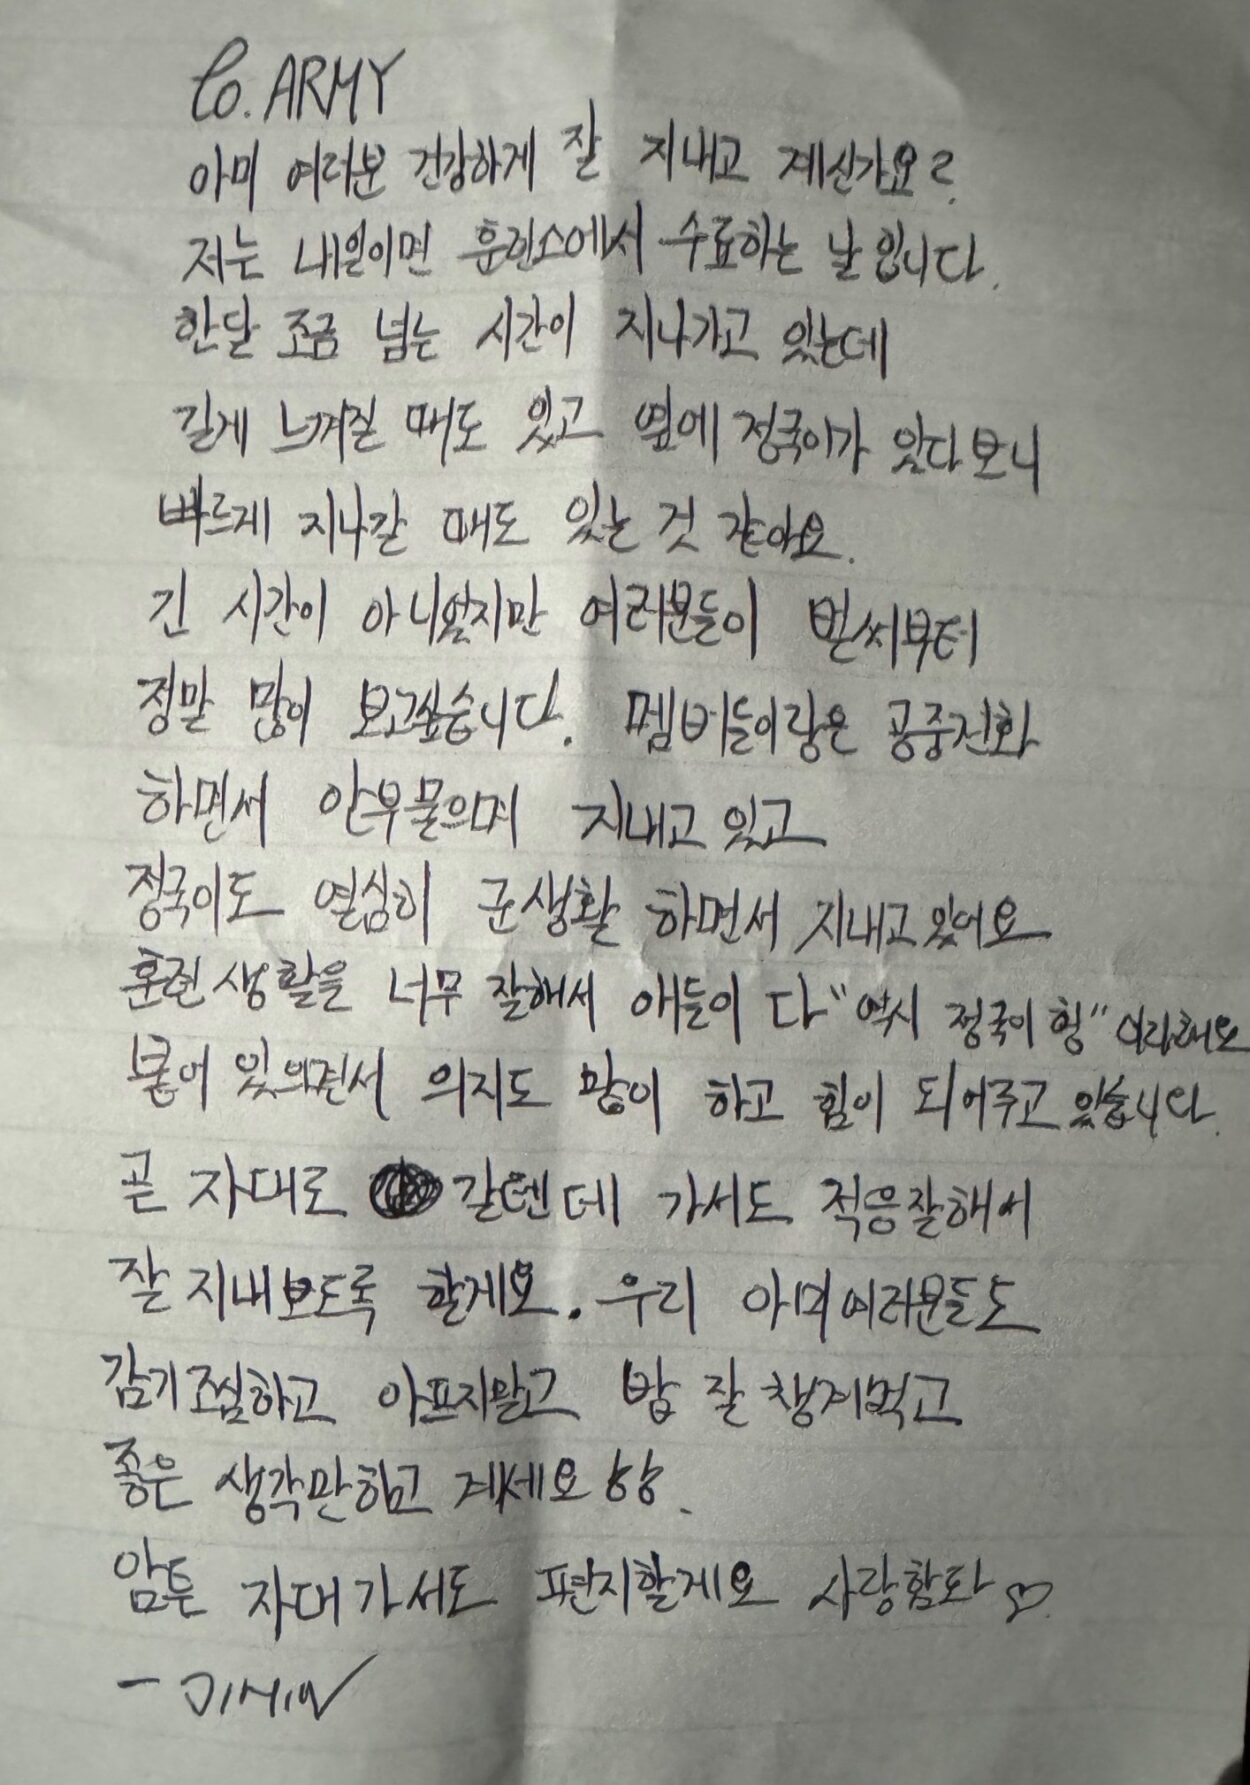 To. ARMY
아미 여러분 건강하게 잘 지내고 계신가요?
저는 내일이면 훈련소에서 수료하는 날입니다.
한달 조금 넘는 시간이 지나가고 있는데
길게 느껴질 때도 있고 옆에 정국이가 있다보니
빠르게 지나갈 때도 있는 것 같아요.
긴 시간이 아니였지만 여러분들이 벌써부터
정말 많이 보고싶습니다. 멤버들이랑은 공중전화
하면서 안부 물으며 지내고 있고
정국이도 열심히 군생활 하면서 지내고 있어요
훈련 생활을 너무 잘해서 애들이 다 "역시 정국이 형" 이라해요
붙어 있으면서 의지도 많이 하고 힘이 되어주고 있습니다.
곧 자대로 갈텐데 가서도 적응잘해서
잘 지내보도록 할게요. 우리 아미여러분들도
감기조심하고 아프지말고 밥 잘 챙겨먹고
좋은 생각만하고 계세요 항항.
암튼 자대가서도 편지할게요 사랑함다 ♡.
- JIMIN